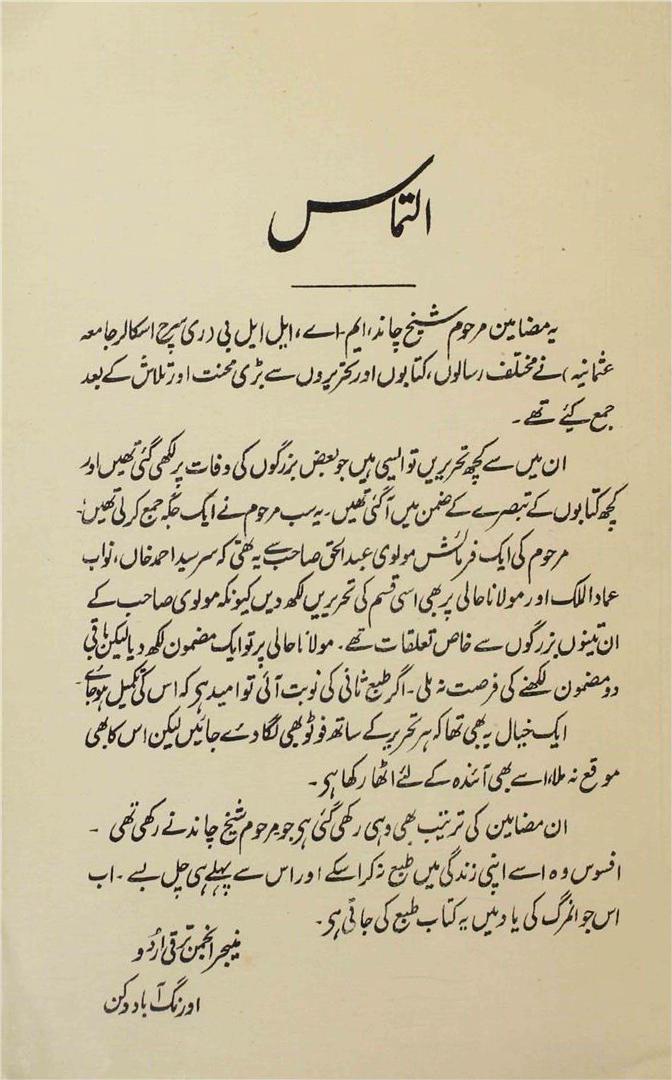 التماس
یہ مضامین مرحوم شیخ چاند، ایم۔اے، ایل ایل بی (ری سرچ اسکالر جامعہ
عثمانیہ) نے مختلف رسالوں، کتابوں اور تحریروں سے بڑی محنت اور تلاش کے بعد
جمع کیے تھے۔
ان میں سے کچھ تحریریں تو ایسی ہیں جو بعض بزرگوں کی وفات پر لکھی گئی تھیں اور
کچھ کتابوں کے تبصرے کے ضمن میں آگئی تھیں۔ یہ سب مرحوم نے ایک جگہ جمع کرلی تھیں۔
مرحوم کی ایک فرمائش مولوی عبدالحق صاحب سے یہ تھی کہ سر سید احمد خاں، نواب
عماد الملک اور مولانا حالی پر بھی اسی قسم کی تحریریں لکھ دیں کیونکہ مولوی صاحب کے
ان تینوں بزرگوں سے خاص تعلقات تھے۔ مولانا حالی پر تو ایک مضمون لکھ دیا لیکن باقی
دو مضمون لکھنے کی فرصت نہ ملی۔ اگر طبع ثانی کی نوبت آئی تو امید ہی کہ اس کی تکمیل ہوجائے۔
ایک خیال یہ بھی تھا کہ ہر تحریر کے ساتھ فوٹو بھی لگا دے جائیں لیکن اس کا بھی
موقع نہ ملا، اسے بھی آئندہ کے لئے اٹھا رکھا ہی۔
ان مضامین کی ترتیب بھی وہی رکھی گئی ہی جو مرحوم شیخ چاند نے رکھی تھی۔
افسوس وہ اسے اپنی زندگی میں طبع نہ کرا سکے اور اس سے پہلے ہی چل بسے۔ اب
اس جوانمرگ کی یاد میں یہ کتاب طبع کی جاتی ہی۔
منیجر انجمن ترقی اردو
اورنگ آباد دکن